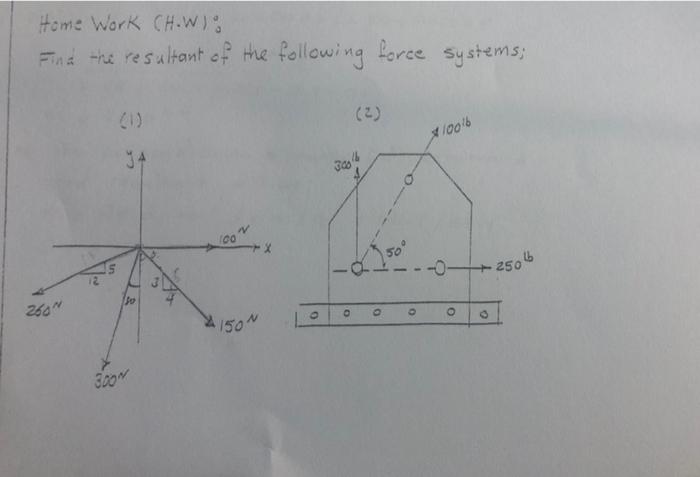 Home Work (H.W):
Find the resultant of the following force systems;
(1)
(2)
y
100 lb
300 lb
100 N
x
50°
5
12
3
4
250 lb
260 N
150 N
300 N